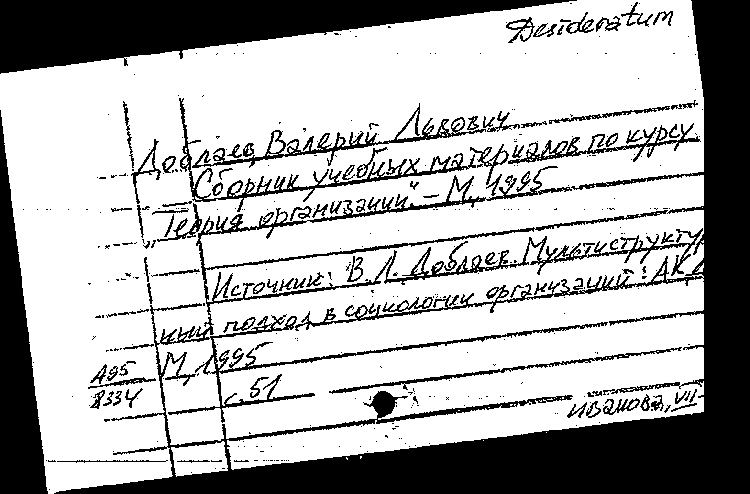 Desideratum
Доблаев, Валерий Львович
Сборник учебных материалов по курсу
„Теория организации". – М, 1995
Источник: В. Л. Доблаев. Мультиструктур
ный подход в социологии организаций: АКД
М, 1995
А95
8334
с. 51
Иванова, VII-